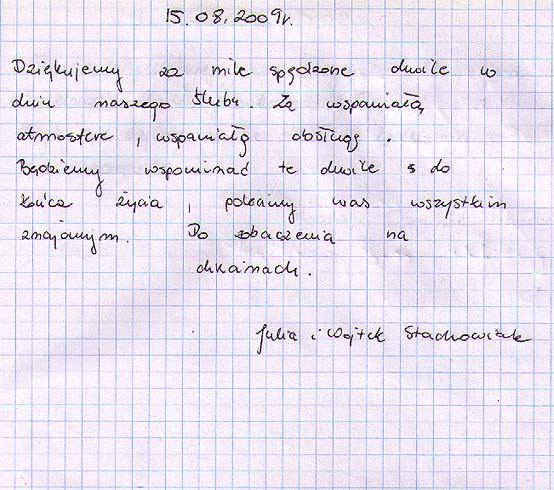 15.08.2009r.
Dziękujemy za miłe spędzone chwile w
dniu naszego ślubu. Za wspaniałą
atmosferę, wspaniałą obsługę.
Będziemy wspominać te chwile do
końca życia, polecamy was wszystkim
znajomym. Do zobaczenia na
chrzcinach.
Julia i Wojtek Stachowiak